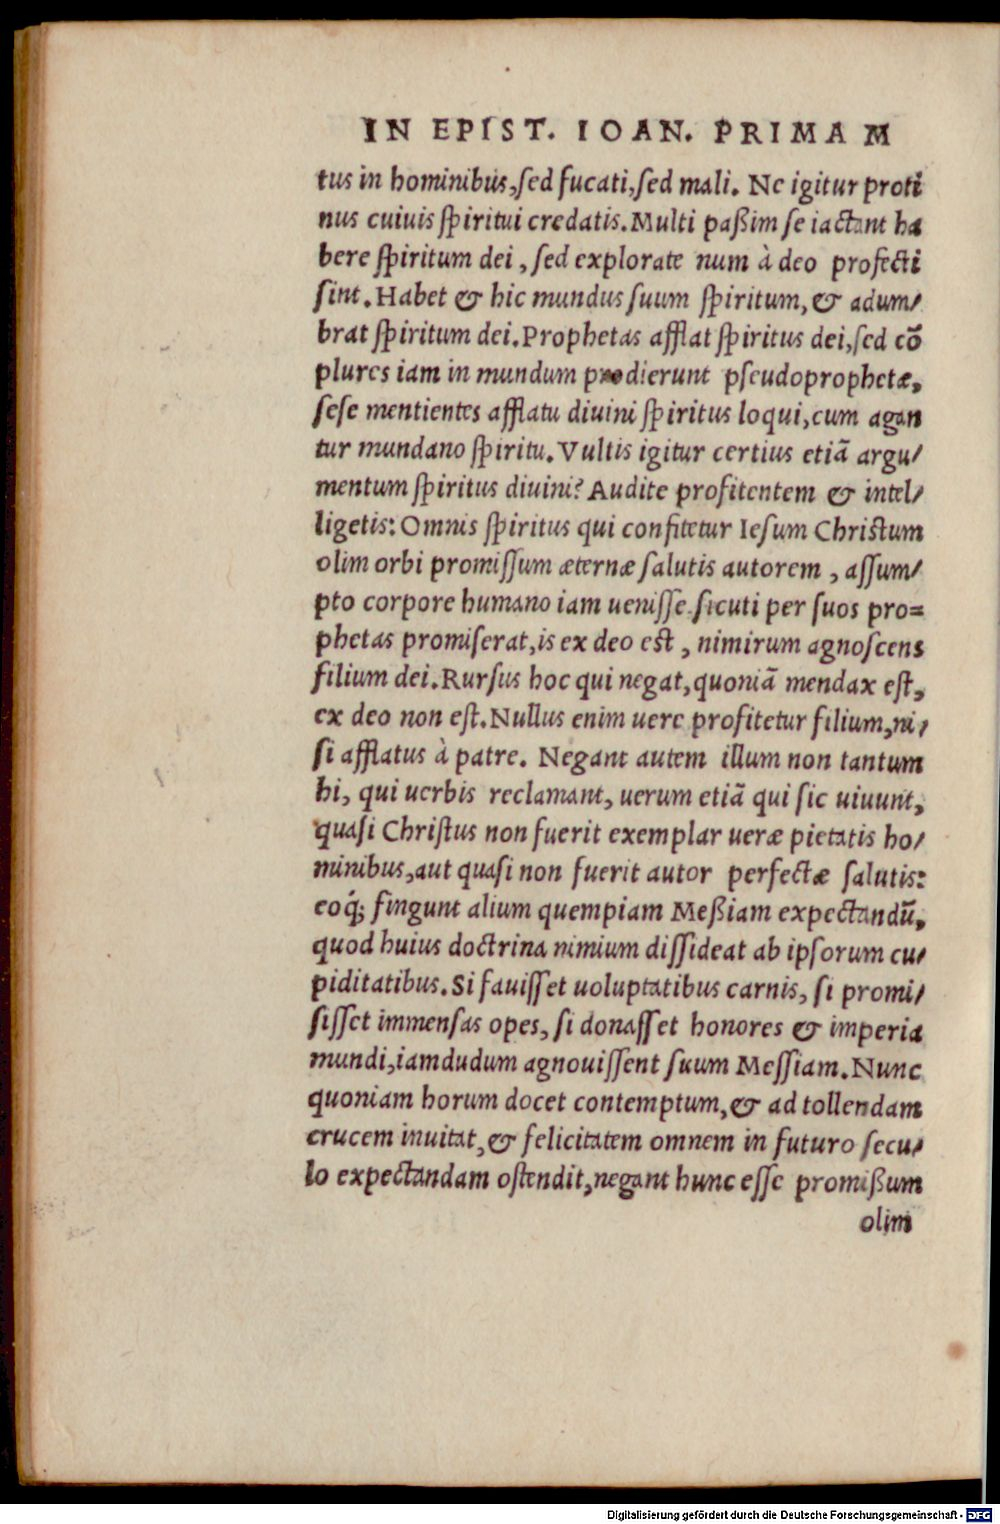 IN EPIST. IOAN. PRIMAM
tus in hominibus, sed fucati, sed mali. Ne igitur proti
nus cuiuis spiritui credatis. Multi paßim se iactant ha
bere spiritum dei, sed explorate num à deo profecti
sint. Habet & hic mundus suum spiritum, & adum/
brat spiritum dei. Prophetas afflat spiritus dei, sed cõ
plures iam in mundum prodierunt pseudoprophetæ,
sese mentientes afflatu diuini spiritus loqui, cum agan
tur mundano spiritu. Vultis igitur certius etiã argu/
mentum spiritus diuini? Audite profitentem & intel/
ligetis: Omnis spiritus qui confitetur Iesum Christum
olim orbi promissum æternæ salutis autorem, assum/
pto corpore humano iam uenisse sicuti per suos pro=
phetas promiserat, is ex deo est, nimirum agnoscens
filium dei. Rursus hoc qui negat, quoniã mendax est,
ex deo non est. Nullus enim uere profitetur filium, ni/
si afflatus à patre. Negant autem illum non tantum
hi, qui uerbis reclamant, uerum etiã qui sic uiuunt,
quasi Christus non fuerit exemplar ueræ pietatis ho/
minibus, aut quasi non fuerit autor perfectæ salutis:
eoq́; fingunt alium quempiam Meßiam expectandũ,
quod huius doctrina nimium dissideat ab ipsorum cu/
piditatibus. Si fauisset uoluptatibus carnis, si promi/
sisset immensas opes, si donasset honores & imperia
mundi, iamdudum agnouissent suum Messiam. Nunc
quoniam horum docet contemptum, & ad tollendam
crucem inuitat, & felicitatem omnem in futuro secu/
lo expectandam ostendit, negant hunc esse promißum
olim
Digitalisierung gefördert durch die Deutsche Forschungsgemeinschaft - DFG